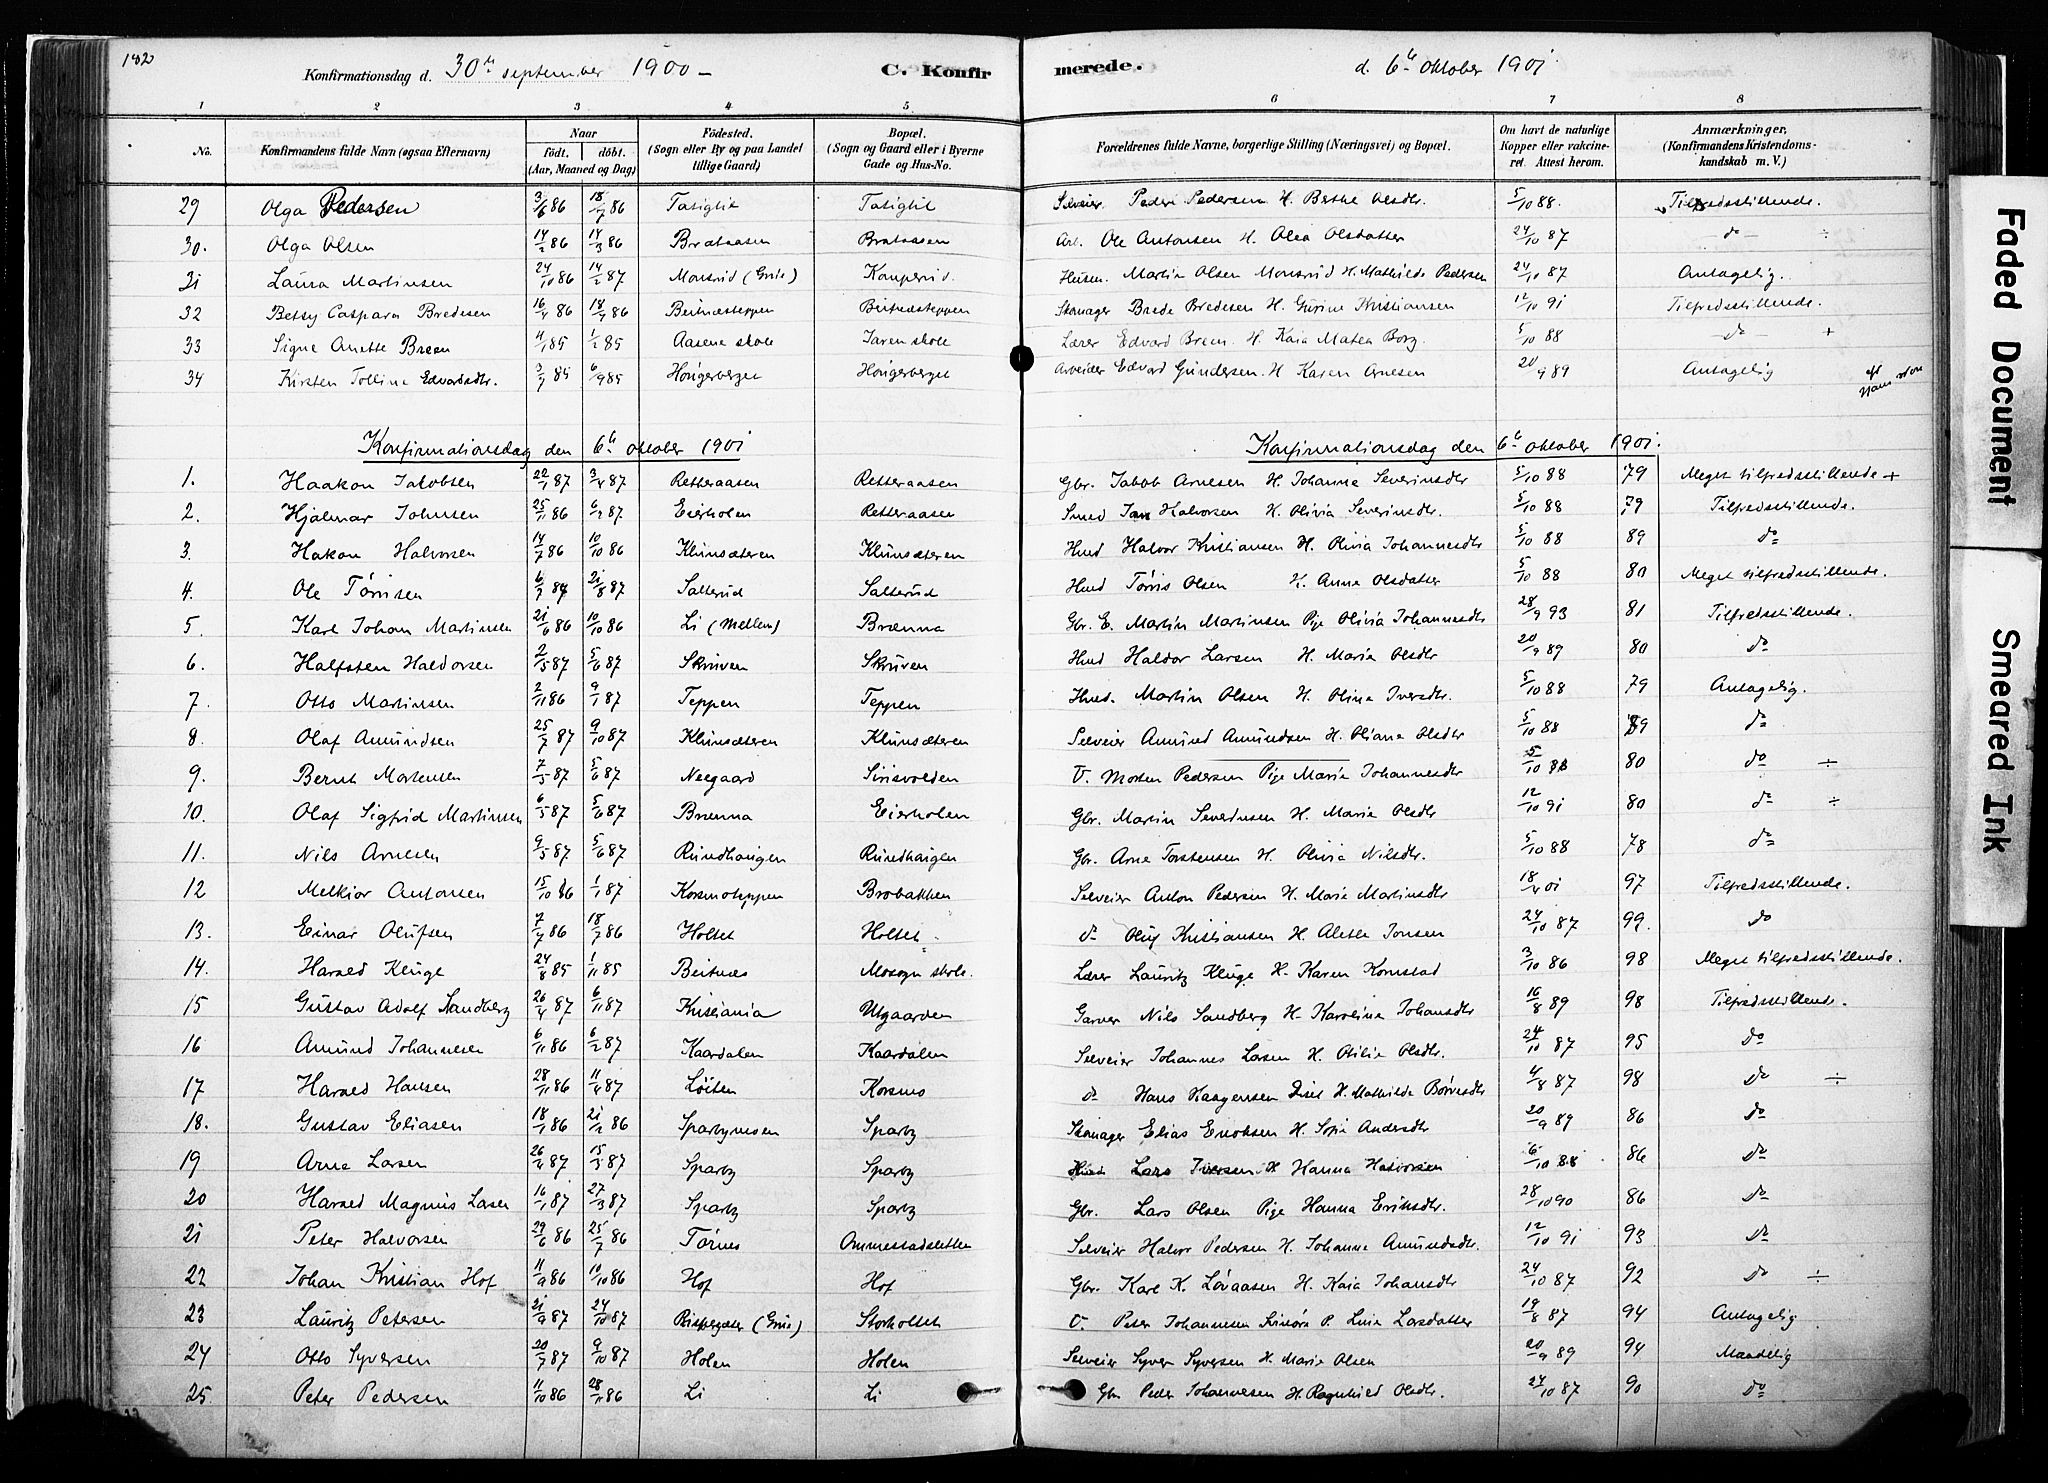 182
Konfirmationsdag d. 30te september 1900 – C. Konfirmerede. d. 6te Oktober 1901.
1 2 3 4 5 6 7 8
No. Konfirmandens fulde Navn (ogsaa Efternavn) Naar født. døbt. (Aar, Maaned og Dag) Fødested. (Sogn eller By og paa Landet tillige Gaard) Bopæl. (Sogn og Gaard eller i Byerne Gade og Hus-No. Forældrenes fulde Navne, borgerlige Stilling (Næringsvei) og Bopæl. Om havt de naturlige Kopper eller vakcineret. Attest herom. Anmærkninger, (Konfirmandens Kristendomskundskab m. V.)
29 Olga Pedersen 3/6 86 18/7 86 Tasiglil Tasiglil Selveier Peder Pedersen H. Berthe Olsdtr. 5/10 88. Tilfredsstillende.
30. Olga Olsen 14/2 86 14/3 86 Brataasen Brataasen Arb. Ole Antonsen H. Olea Olsdatter 24/10 87 – do – ÷
31 Laura Martinsen 24/10 86 14/2 87 Monsrud (Grue) Kauperud. Husm. Martin Olsen Monsrud H. Mathilde Pedersen 24/10 87 Antagelig.
32 Betsy Caspara Bredesen 16/4 86 18/7 86 Beitnæsteppen Beitnæsteppen Skomager Brede Bredesen H. Gurine Kristiansen 12/10 91 Tilfredsstillende.
33 Signe Anette Breen 4/1 85 1/2 85 Aasene skole Jaren skole Lærer Edvard Breen. H. Kaia Matea Borg. 5/10 88 – do – +
34 Kirsten Tolline Edvardsdtr. 3/7 85 6/9 85 Hougerberget Hougerberget Arbeider Edvard Gundersen. H. Karen Arnesen 20/9 89 Antagelig
Konfirmationsdag den 6te oktober 1901 Konfirmationsdag den 6te oktober 1901.
1. Haakon Jakobsen 22/1 87 3/4 87 Retteraasen Retteraasen Gbr. Jakob Arnesen H. Johanne Severinsdtr 5/10 88 79 Meget tilfredsstillende +
2. Hjalmar Johnsen 25/11 86 6/2 87 Eierholen Retteraasen Smed Jan Halvorsen H. Olivia Severinsdtr. 5/10 88 79 Tilfredsstillende.
3. Hakon Halvorsen 14/7 86 10/10 86 Klunsæteren Klunsæteren Husd Halvor Kristiansen H. Olivia Johannesdtr 5/10 88 89 do
4. Ole Tørrisen 6/7 87 21/8 87 Salterud Salterud Husd Tørris Olsen H. Anne Olsdatter 5/10 88 80 Meget tilfredsstillende.
5. Karl Johan Martinsen 21/6 86 10/10 86 Li (Mellem) Brænna Gbr. E. Martin Martinsen Pige Olivia Johannesdtr 28/9 93 81 Tilfredsstillende.
6. Halfsten Haldorsen 2/5 87 5/6 87 Skruven Skruven Husd Haldor Larsen H. Maria Olsdtr 20/9 89 80 do
7. Otto Martinsen 2/11 86 9/1 87 Teppen Teppen Husd. Martin Olsen H. Olina Iversdtr. 5/10 88 79 Antagelig.
8. Olaf Amundsen 25/7 87 9/10 87 Klunsæteren Klunsæteren Selveier Amund Amundsen H. Oliane Olsdtr 5/10 88 89 do
9. Bernt Mortensen 7/3 87 5/6 87 Neegaard Sirisvolden U. Morten Pedersen Pige Maria Johannesdtr 5/10 88 80 do ÷
10. Olaf Sigfrid Martinsen 6/5 87 5/6 87 Brænna Eierholen Gbr. Martin Severinsen H. Maria Olsdtr 12/10 91 80 do ÷
11. Nils Arnesen 9/5 87 5/6 87 Rundhaugen Rundhaugen Gbr. Arne Torstensen H. Olivia Nilsdtr. 5/10 88 78 do
12 Melkior Antonsen 15/10 86 1/1 87 Korsmoteppen Brobakken Selveier Anton Pedersen H. Marie Martinsdtr 18/4 01 97 Tilfredsstillende.
13. Einar Olufsen 7/4 86 18/7 86 Holtet Holtet do Oluf Kristiansen H. Alette Jonsen 24/10 87 99. do
14. Harald Kluge 24/8 85 1/11 85 Beitnes Mosogn skole. Lærer Lauritz Kluge H. Karen Kornstad 3/10 86 98 Meget tilfredsstillende.
15 Gustav Adolf Sandberg 26/4 87 6/11 87 Kristiania Utgaarden Garver Nils Sandberg H. Karoline Johansdtr 16/8 89 98 Tilfredsstillende.
16 Amund Johannesen 6/11 86 6/2 87 Kaardalen Kaardalen Selveier Johannes Larsen H. Otilie Olsdtr. 24/10 87 95 do
17 Harald Hansen 28/11 86 11/4 87 Løiten Korsmo do Hans Haagensen H. Mathilde Børresdtr 4/8 87 98 do ÷
18. Gustav Eliasen 18/1 86 21/2 86 Sparbymoen Sparby Skomager Elias Enoksen H. Sofie Andersdtr 20/9 89 86 do
19 Arne Larsen 26/4 87 15/5 87 Sparby Sparby Husd Lars Iversen H Hanna Halvorsen 6/10 88 86 do
20 Harald Magnus Lasen 16/1 87 27/3 87 Sparby Sparby Gbr. Lars Olsen Pige Hanna Eriksdtr. 28/10 90 86 do
21 Peter Halvorsen 29/6 86 25/7 86 Tørnes Ommestadsletten Selveier Halvor Pedersen H. Johanne Amundsdtr. 12/10 91 93 do
22 Johan Kristian Hof 11/9 86 10/10 86 Hof Hof Gbr. Karl K. Løvaasen H. Kaia Johansdtr 24/10 87 92 do ÷
23 Lauritz Petersen 21/9 87 24/10 87 (Grue) Storholtet U. Peter Johannesen P. Lina Larsdatter 19/8 87 94 Antagelig
24 Otto Syversen 20/7 87 9/10 87 Holen Holen Selveier Syver Syversen H. Marie Olsen 20/9 89 94 Maadelig
25. Peter Pedersen 11/10 86 28/11 86 Li Li Gbr Peder Johannesen H. Ragnhild Olsdtr. 24/10 87 90 do
Faded Document
Smeared Ink